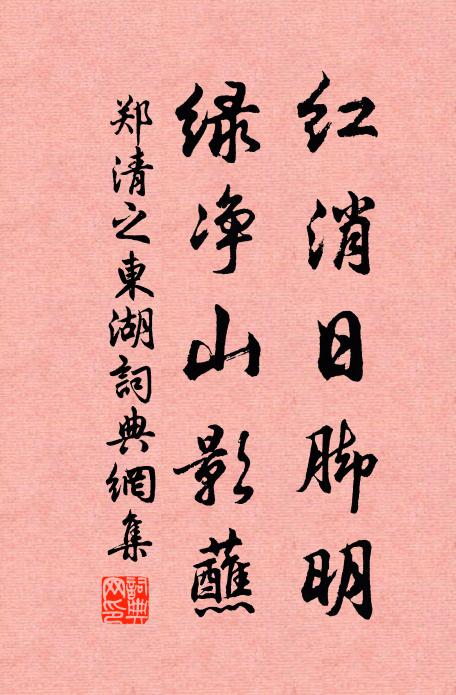 红消日脚明
绿净山影蘸
郑清之東湖詞典網集
詞典網印